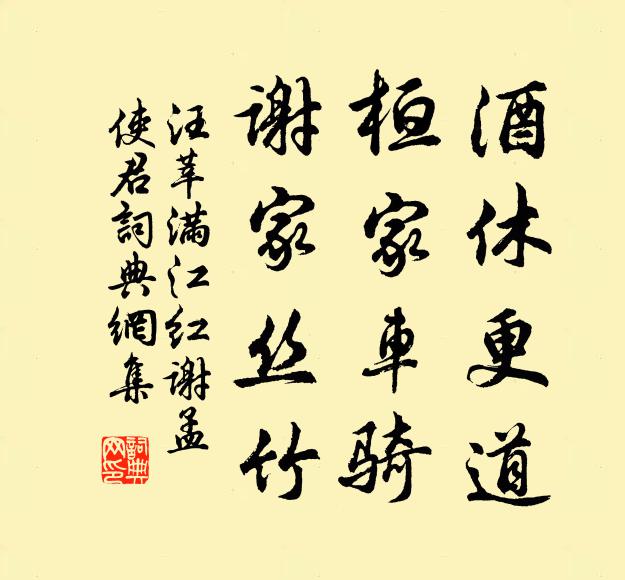 酒休更道
桓家車騎
謝家丝竹
汪莘满江红謝孟
使君詞典網集
詞典
网印